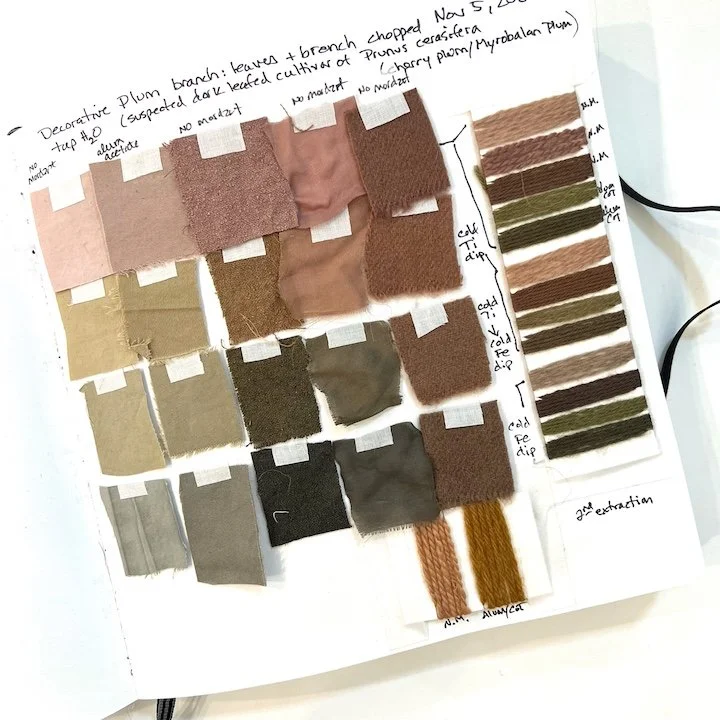 Decorative Plum branch: leaves + branch chopped Nov 5, 20
tap H2O (suspected dark leafed cultivar of Prunus cerasifera
(cherry plum/Myrobalan Plum)
No mordant
alum acetate
No mordant
No mordant
No mordant
N.M.
N.M
N.M
alum
cot
alum
cot
cold
Ti
dip
cold
Ti
↓
cold
Fe
dip
cold
Fe
dip
2nd extraction
N.M.
Alum/cot